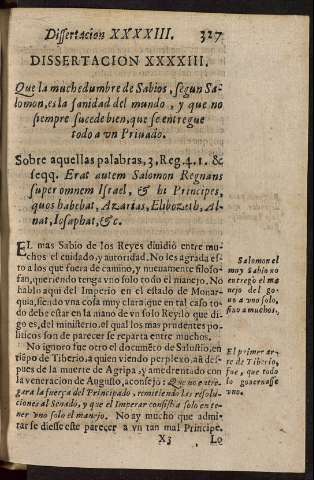 Dissertacion XXXXIII. 327
DISSERTACION XXXXIII.
Que la muchedumbre de Sabios, segun Sa-
lomon, es la sanidad del mundo, y que no
siempre sucede bien, que se entregue
todo a vn Priuado.
Sobre aquellas palabras, 3, Reg. 4. 1. &
seqq. Erat autem Salomon Regnans
super omnem Israel, & hi Principes,
quos habebat, Azarias,
nat, Iosaphat, &c.
EL mas Sabio de los Reyes diuidió entre mu-
chos el cuidado, y autoridad. No les agrada es-
to a los que fuera de camino, y nueuamente filoso-
fan, queriendo tenga vno solo todo el manejo. No
hablo aqui del Imperio en el estado de Monar-
quia, siendo vna cosa muy clara, que en tal caso to-
do debe estar en la mano de vn solo Rey: lo que di-
go es, del ministerio, el qual los mas prudentes po-
liticos son de parecer se reparta entre muchos.
No ignoro fue otro el documẽto de Salustio, en
tiẽpo de Tiberio, a quien viendo perplexo, aũ des-
pues de la muerte de Agripa, y amedrentado con
la veneracion de Augusto, aconsejò: Que no entre-
gara la fuerça del Principado, remitiendo las resolu-
ciones al Senado, y que el Imperar consistia solo en te-
ner vno solo el manejo. No ay mucho que admi-
rar se diesse este parecer a vn tan mal Principe.
X3 Lo
Salomon el
muy Sabio no
entregó el ma
nejo del go-
a vno solo,
sino a muchos.
El primer ar-
te de Tiberio,
fue, que todo
lo gouernasse
vno.